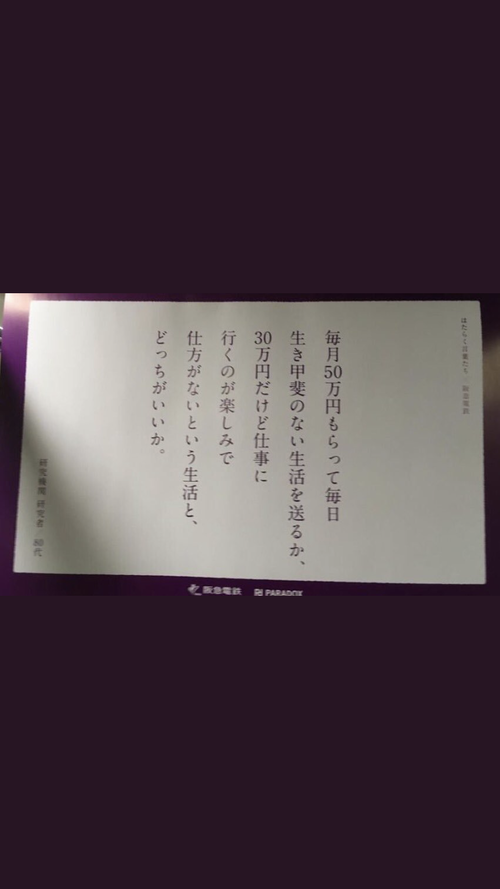 はたらく言葉たち 阪急電鉄
毎月50万円もらって毎日
生き甲斐のない生活を送るか、
30万円だけど仕事に
行くのが楽しみで
仕方がないという生活と、
どっちがいいか。
研究機関 研究者 80代
阪急電鉄 PARADOX